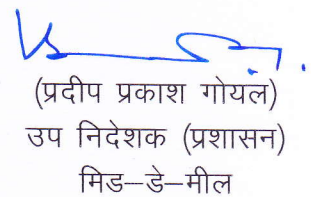 (प्रदीप प्रकाश गोयल)
उप निदेशक (प्रशासन)
मिड–डे–मील